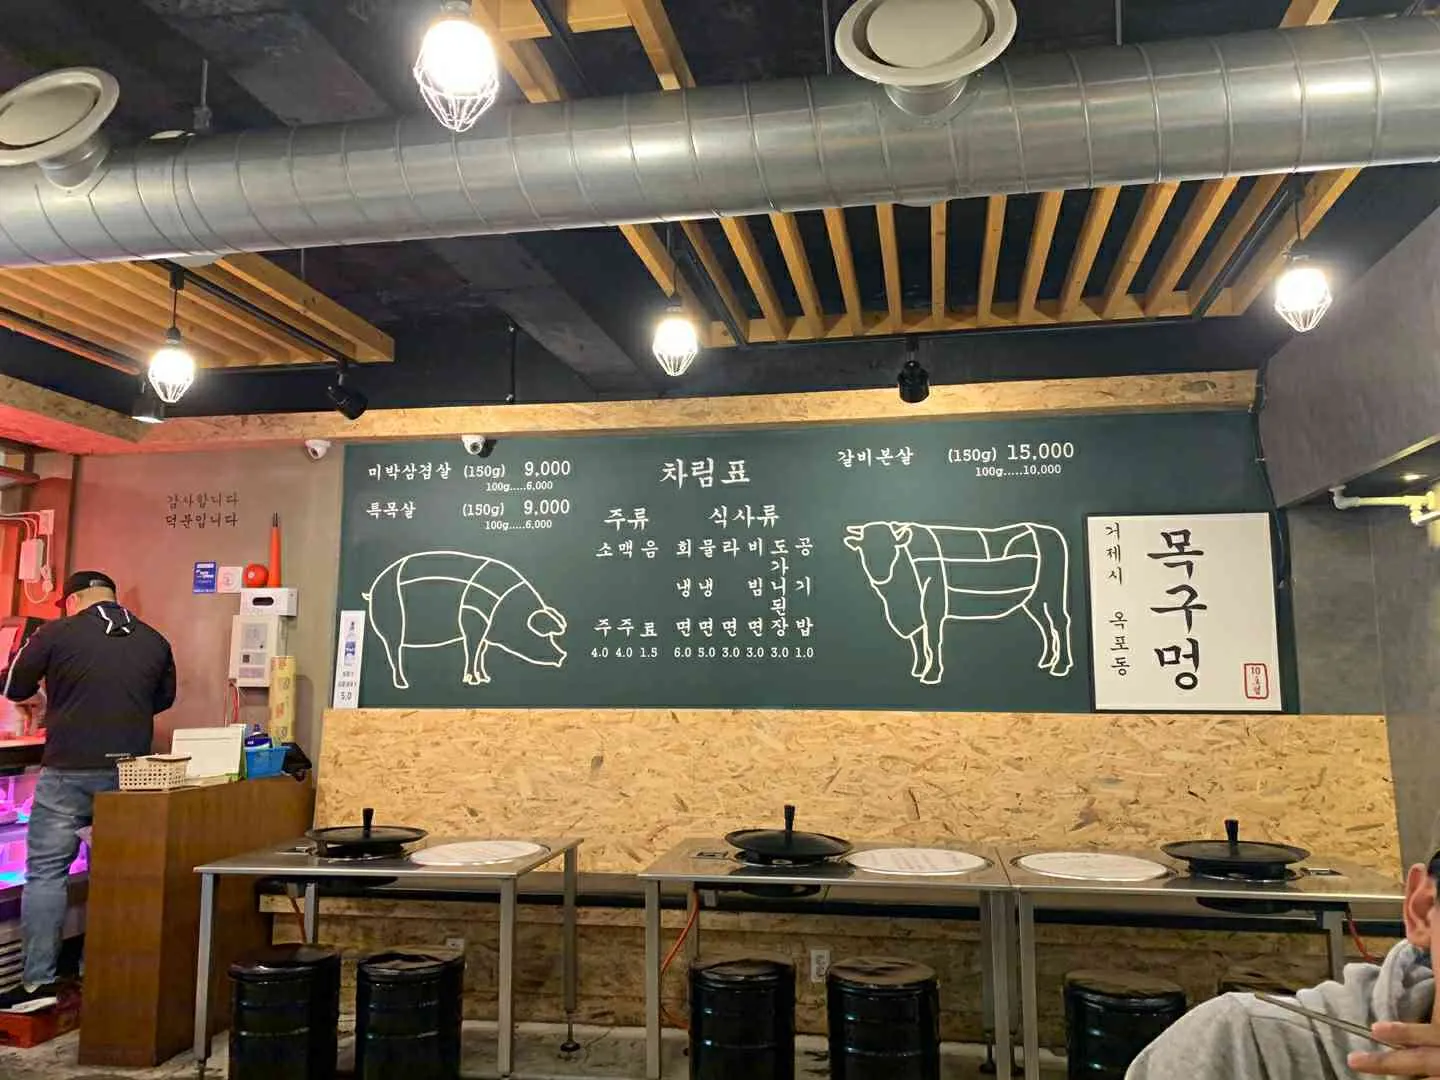 감사합니다
덕분입니다
미박삼겹살 (150g) 9,000
100g.....6,000
특목살 (150g) 9,000
100g.....6,000
차림표
주류
소주 4.0
맥주 4.0
음료 1.5
식사류
회냉면 6.0
물냉면 5.0
라면 3.0
비빔면 3.0
도가니된장 3.0
공기밥 1.0
갈비본살 (150g) 15,000
100g.....10,000
거제시 옥포동
목구멍
10
호점
5.0